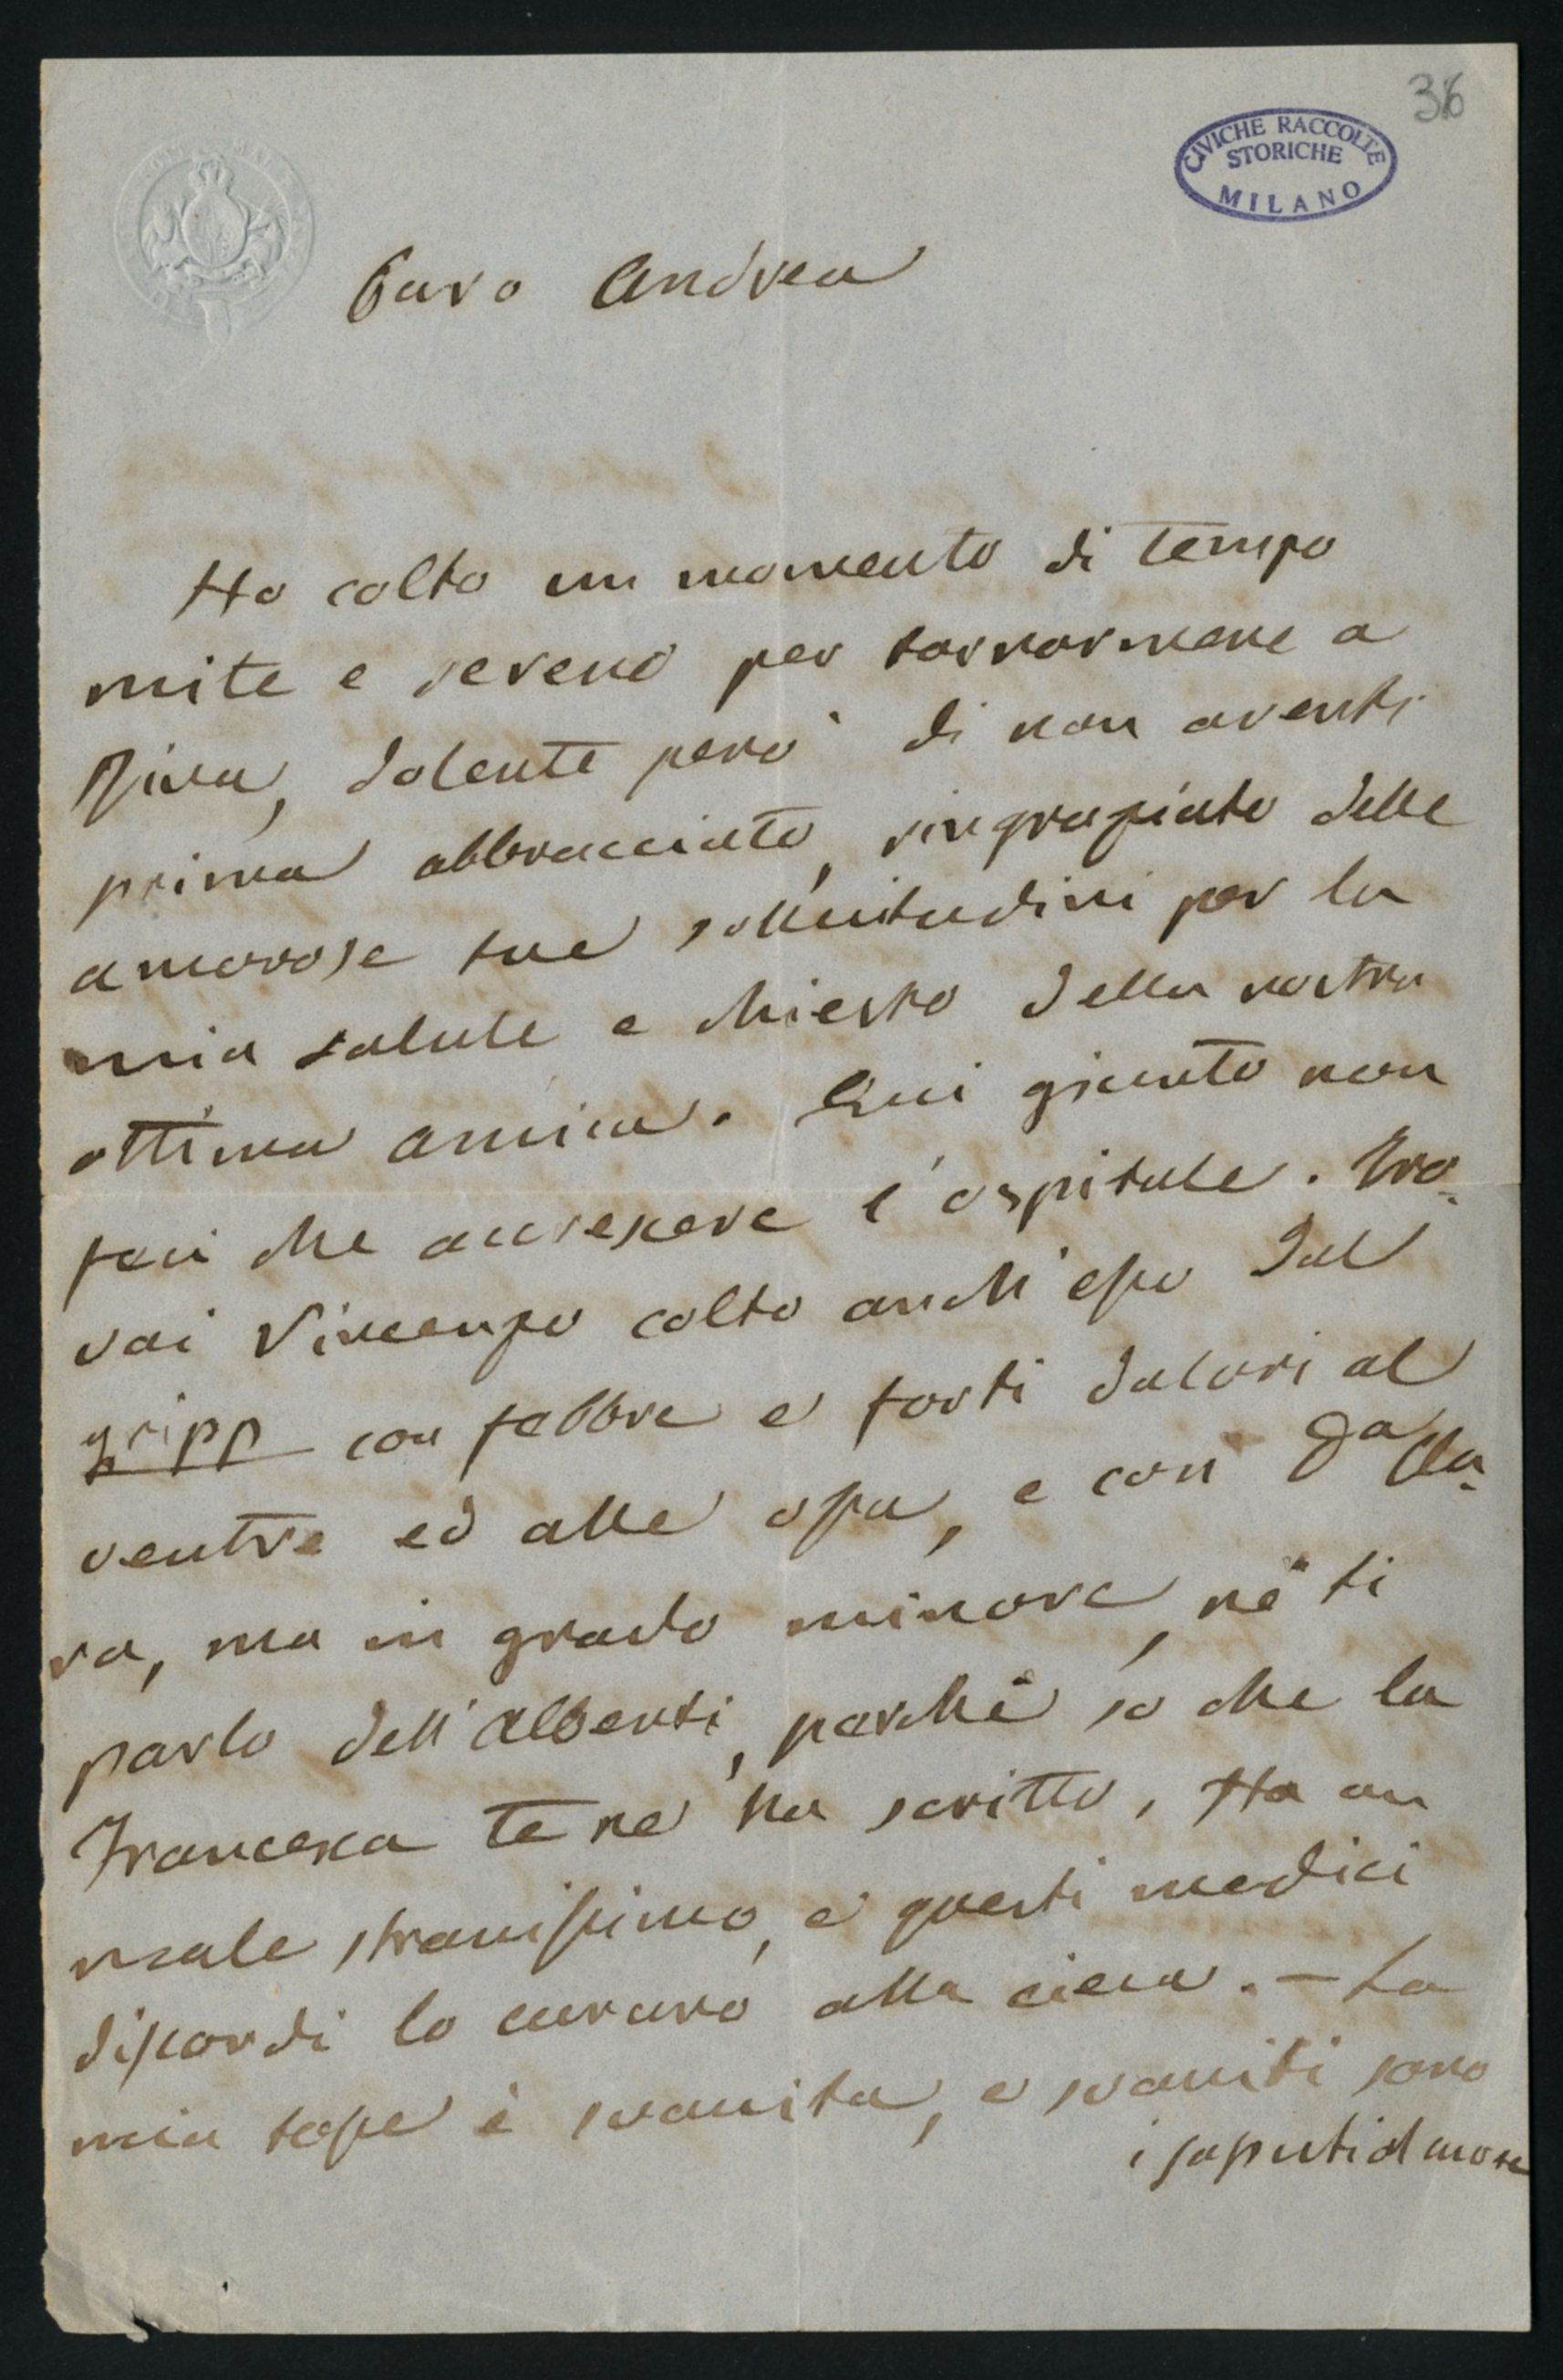 36
CIVICHE RACCOLTE
STORICHE
MILANO
Caro Andrea
Ho colto un momento di tempo
mite e sereno per tornarmene a
Riva, dolente però di non averti
prima abbracciato, ringraziato delle
amorose tue sollecitudini per la
mia salute e chiesto della nostra
ottima amica. Qui giunto non
feci che accrescere l'ospitale. Tro-
vai Vincenzo colto anch'esso dal
gripp con febbre e forti dolori al
ventre ed alle ossa, e così Da Cla-
ra, ma in grado minore, nè ti
parlo dell'Alberti, perchè so che la
Francesca te ne ha scritto. Ha un
male stranissimo, e questi medici
discordi lo curano alla cieca. - La
mia tosse è svanita, e svaniti sono
i